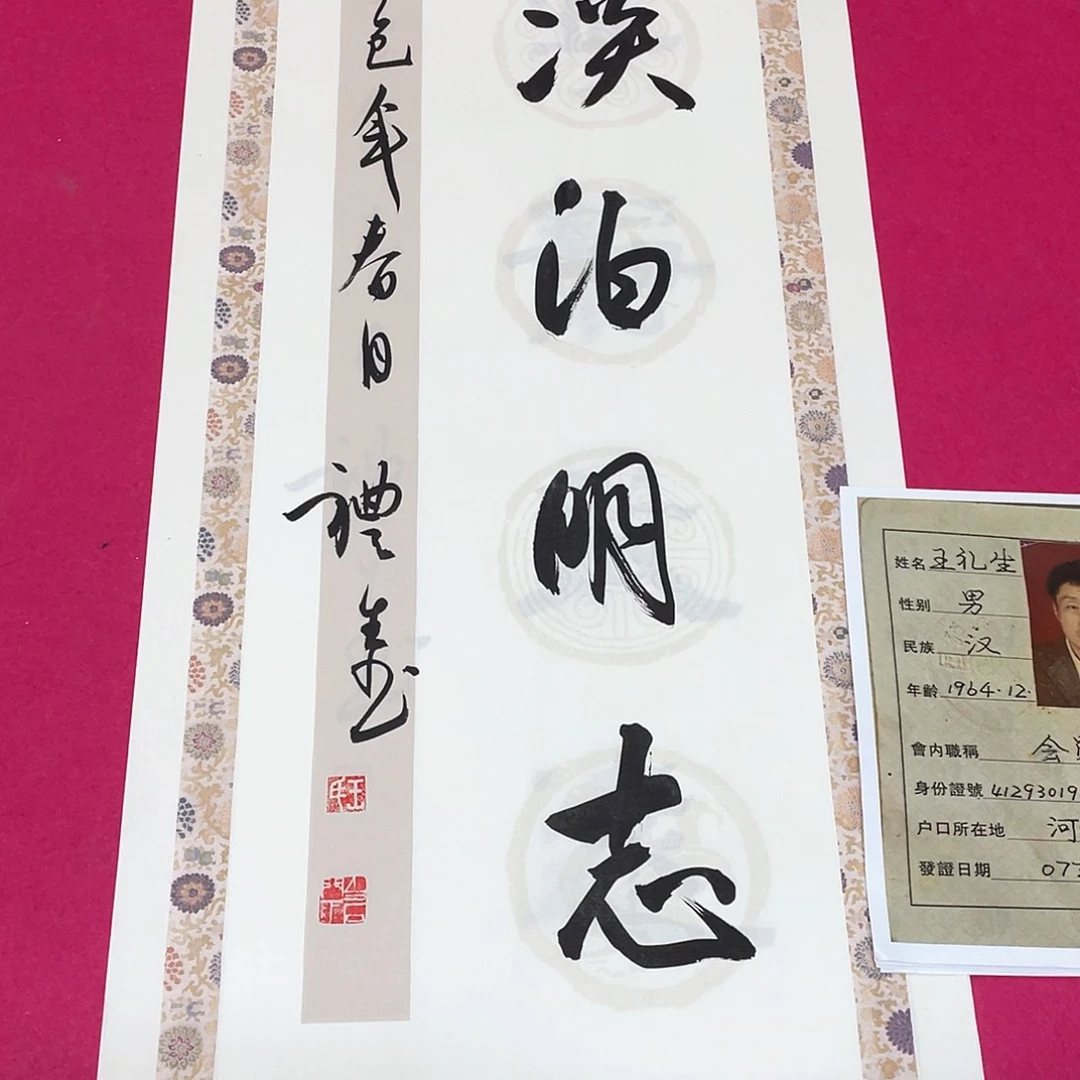 淡泊明志
年春日禮生书
姓名 王礼生
性别 男
民族 汉
年齡 1964·12·
會内職稱 会
身份證號 41293019
户口所在地 河
發證日期 077